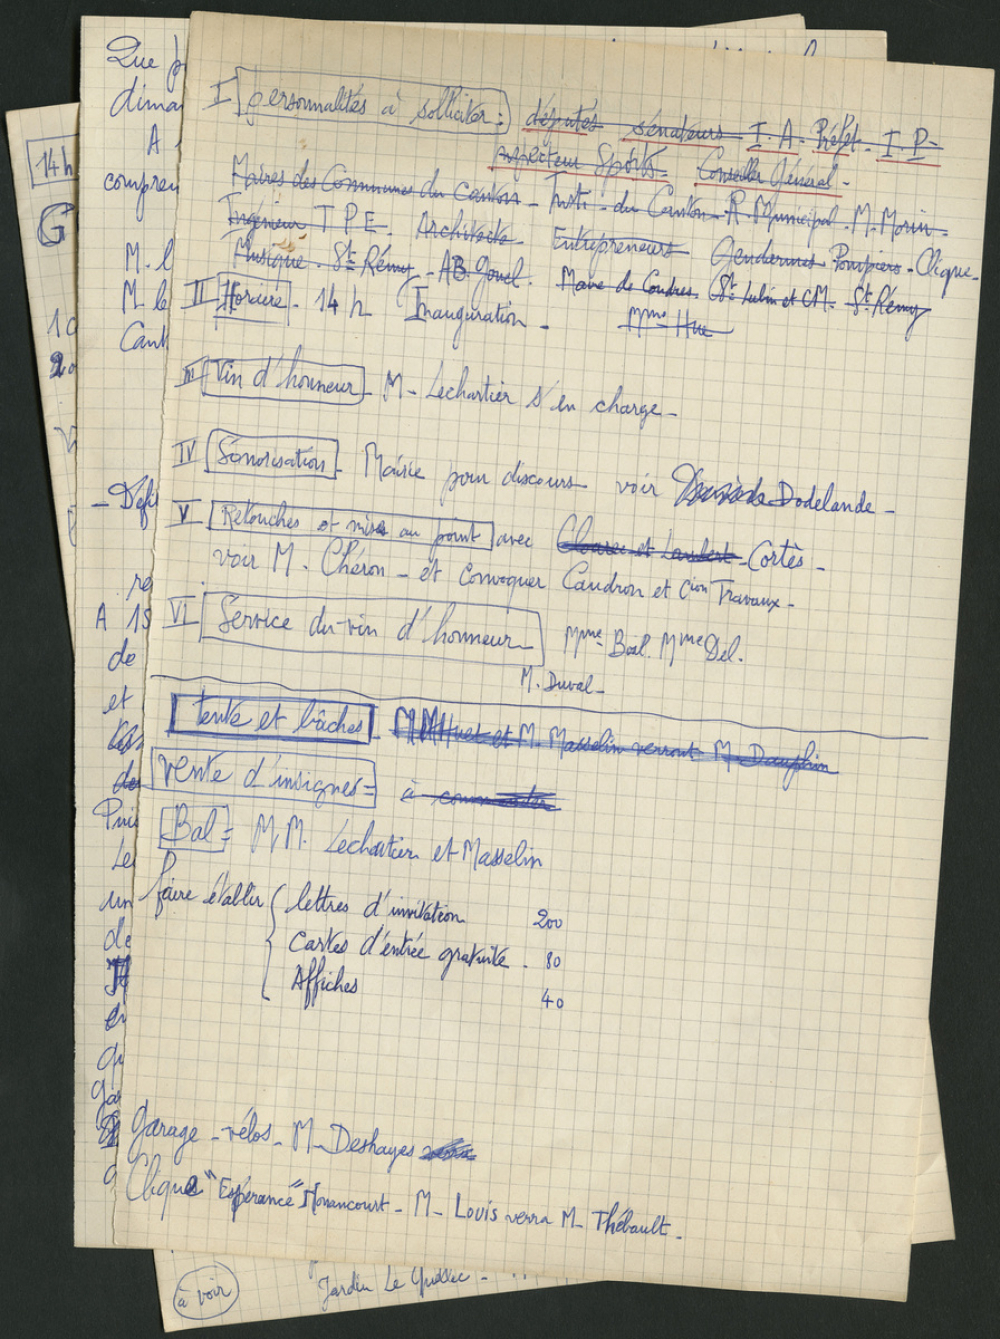 I personnalités à solliciter = députés sénateurs - I. A. Préfet. I. P -
inspecteur Sports - Conseiller Général -
Maires des Communes du Canton - Insti. du Canton - R. Municipal. M. Morin -
Ingénieur T P E. Architecte Entrepreneurs Gendarmes Pompiers - Clique -
Musique. St Rémy - AB. Maire de Condres St Lubin et CM. St Rémy
II Horaire - 14 h Inauguration - Mme Hue
III Vin d'honneur - M - Lechartier s'en charge -
IV Sonorisation - Mairie pour discours voir Dodelande -
V Retouches et mises au point avec et Lambert - Cortès -
voir M. Chéron - et convoquer Caudron et Cion Travaux -
VI Service du vin d'honneur Mme Boël. Mme Del.
M. Duval -
tente et bâches - M M Huet et M. Masselin verront M. Dauphin
Vente d'insignes = à commander
Bal = M.M. Lechartier et Masselin
faire établir { lettres d'invitation 200
cartes d'entrée gratuite . 80
Affiches 40
Garage - vélos - M - Deshayes verra
Clique "Espérance" Nonancourt - M - Louis verra M - Thébault -
Que
dima
A
compren
M. l
M le
Cant
- Défi
re
A 15
de
et
de
Puis
Le
un
de
en
14 h
G
10
20
à voir
Jardin Le